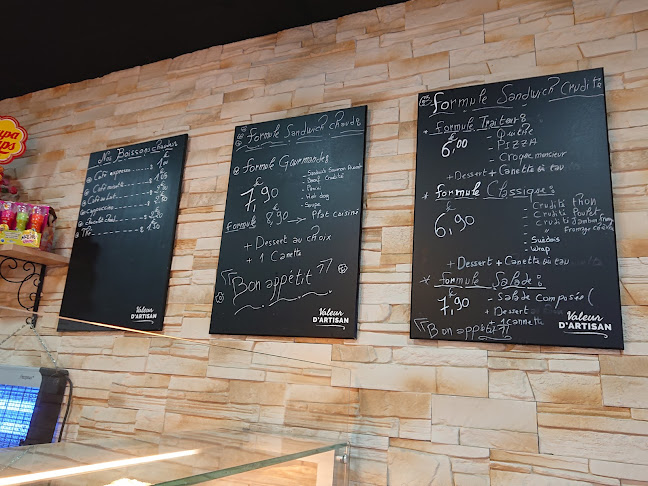 upa
ps
Nos Boissons chaudes
€
Café expresso
Café noisette
Café au Lait
Cappuccino
Chocolat chaud
Thé
Valeur
D'ARTISAN
Formule Sandwich chaud
Formule Gourmandes
€
7,90
- Sandwich
- Boeuf Crudité
- Panini
- Hot dog
- Soupe
Formule 8,90 → Plat cuisiné
+ Dessert au choix
+ 1 Canette
"Bon appétit"
Valeur
D'ARTISAN
Formule Sandwich Crudité
* Formule Traiteur:
6,00
- Quiche
- PIZZA
- Croque monsieur
+ Dessert + Canette ou eau
* Formule Classique:
6,90
- Crudité Thon
- Crudité Poulet
- Crudité Jambon
Fromage
- Suédois
- Wrap
+ Dessert + Canette ou eau
* Formule Salade:
7,90
- Salade Composée
+ Dessert
+ 1 Cannette
"Bon appétit"
Valeur
D'ARTISAN